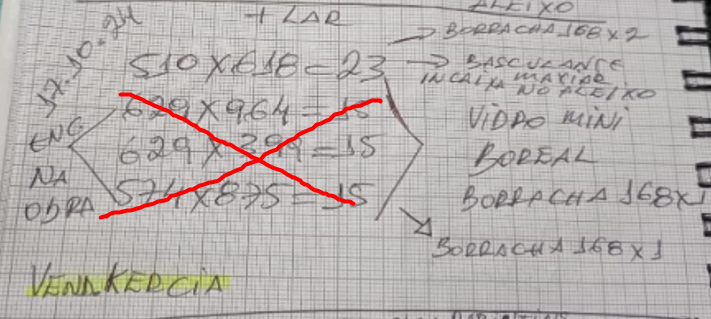 ALEIXO
+ LAR
BORRACHA 168 X 2
17.10.24
510 X 618 = 23
BASCULANTE
INCAIXA MAXIAR
NO ALEIXO
629 X 964 = 15
VIDRO MINI
ENG
629 X 399 = 15
BOREAL
NA
574 X 875 = 15
BORRACHA 168 X 1
OBRA
BORRACHA 168 X 1